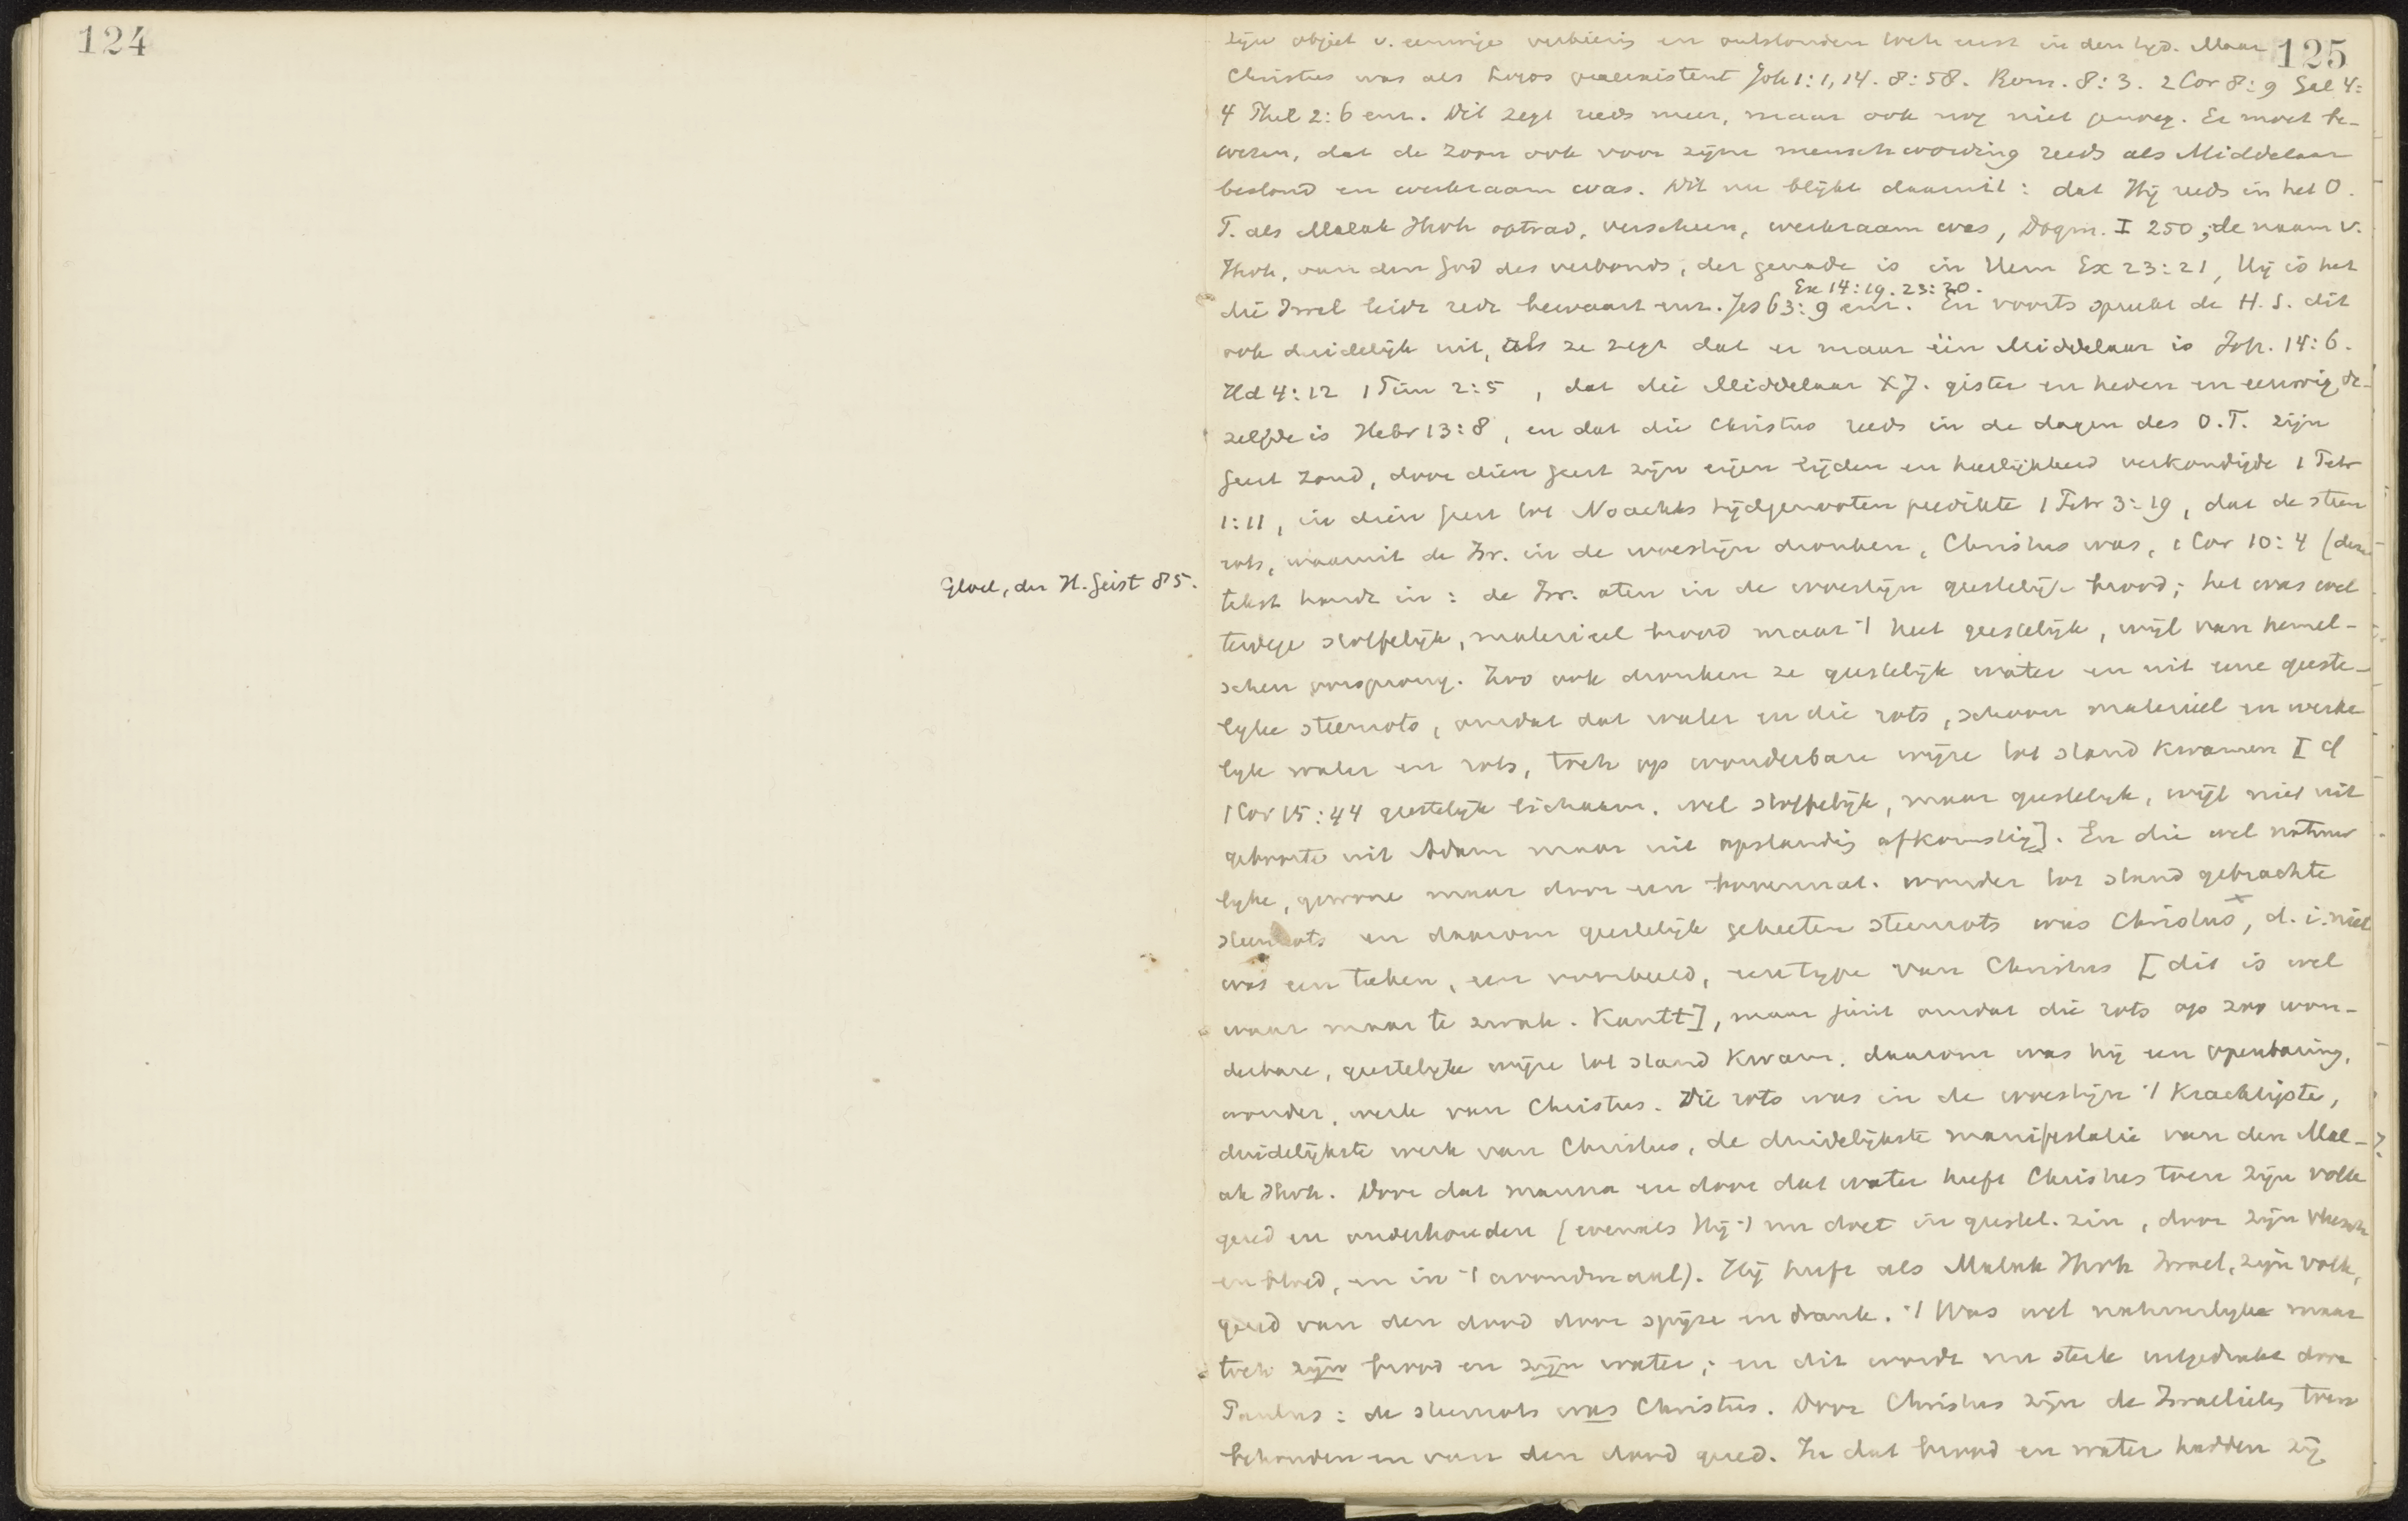 124
125
zijn object v. eeuwige verkiezing en ontstonden toch eerst in den tijd. Maar
Christus was als Logos praeexistent Joh 1:1,14. 8:58. Rom. 8:3. 2 Cor 8:9 Gal 4:
4 Phil 2:6 enz. Dit zegt reeds meer, maar ook nog niet genoeg. Er moet be-
wezen, dat de Zoon ook voor zijne menschwording reeds als Middelaar
bestond en werkzaam was. Dit nu blijkt daaruit: dat Hij reeds in het O.
T. als Malak Jhvh optrad, verscheen, werkzaam was, Dogm. I 250; de naam v.
Jhvh, van den God des verbonds, der genade is in Hem Ex 23:21, Hij is het
Ex 14:19. 23:20.
die Israel leidt redt bewaart enz. Jes 63:9 enz. En voorts spreekt de H. S. dit
ook duidelijk uit, als ze zegt dat er maar één Middelaar is Joh. 14:6.
Hd 4:12 1 Tim 2:5, dat die Middelaar X J. gister en heden en eeuwig de-
zelfde is Hebr 13:8, en dat die Christus reeds in de dagen des O.T. zijn
Geest zond, door dien Geest zijn eigen lijden en heerlijkheid verkondigde 1 Petr
1:11, in dien Geest tot Noachs tijdgenooten predikte 1 Petr 3:19, dat de steen
rots, waaruit de Isr. in de woestijn dronken, Christus was, 1 Cor 10:4 (deze
Gloel, der H. Geist 85.
tekst houdt in: de Isr. aten in de woestijn geestelijk brood; het was wel
terdege stoffelijk, materieel brood maar 't heet geestelijk, wijl van hemel-
schen oorsprong. Zoo ook dronken ze geestelijk water en uit eene geeste-
lijke steenrots, omdat dat water en die rots, schoon materieel en werke
lijk water en rots, toch op wonderbare wijze tot stand kwamen [cf
1 Cor 15:44 geestelijk lichaam. wel stoffelijk, maar geestelijk, wijl niet uit
geboorte uit Adam maar uit opstanding afkomstig]. En die wel natuur
lijke, gewone maar door een bovennat. wonder tot stand gebrachte
steenrots en daarom geestelijk geheeten steenrots was Christus x, d. i. niet
was een teeken, een voorbeeld, een type van Christus [dit is wel
waar maar te zwak. Kantt], maar juist omdat die rots op zoo won-
derbare, geestelijke wijze tot stand kwam. daarom was hij een openbaring,
wonder, werk van Christus. Die rots was in de woestijn 't krachtigste,
duidelijkste werk van Christus, de duidelijkste manifestatie van den Mal-
ak Jhvh. Door dat manna en door dat water heeft Christus toen zijn volk
gered en onderhouden (evenals Hij 't nu doet in geestel. zin, door zijn vleesch
en bloed, en in 't avondmaal). Hij heeft als Malak Jhvh Israel, zijn volk,
gered van den dood door spijze en drank. 't Was wel natuurlijke maar
toch zijn brood en zijn water; en dit wordt nu sterk uitgedrukt door
Paulus: de steenrots was Christus. Door Christus zijn de Israelieten toen
behouden en van den dood gered. In dat brood en water hadden zij